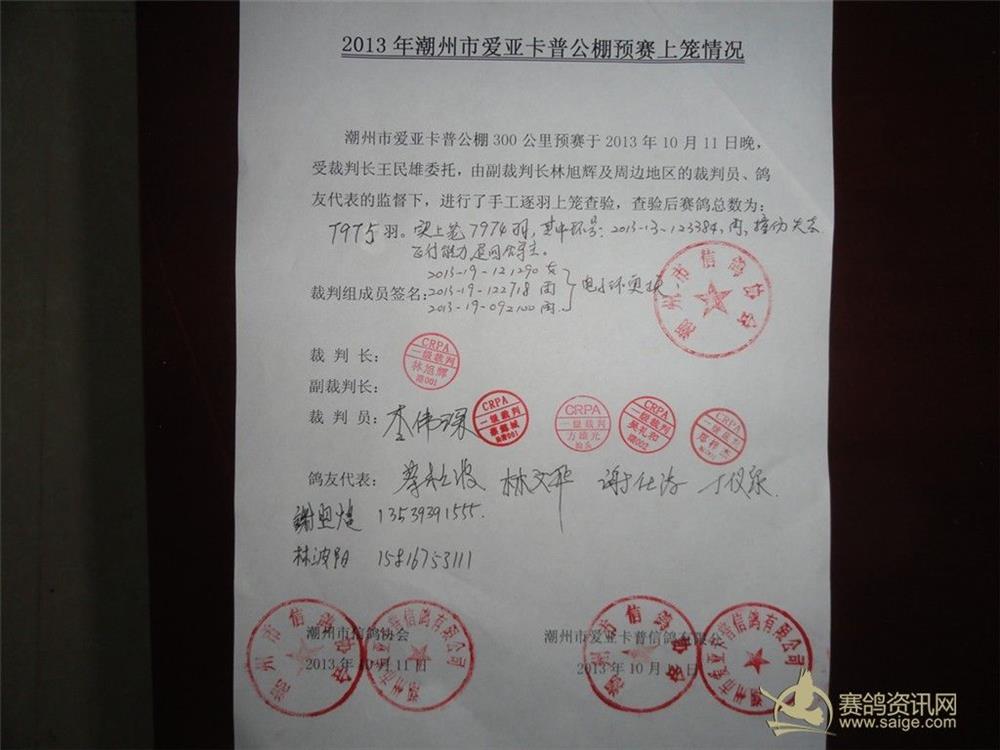 2013年潮州市爱亚卡普公棚预赛上笼情况
潮州市爱亚卡普公棚300公里预赛于2013年10月11日晚，
受裁判长王民雄委托，由副裁判长林旭辉及周边地区的裁判员、鸽
友代表的监督下，进行了手工逐羽上笼查验，查验后赛鸽总数为：
7975羽。实上笼7974羽，其中环号：2013-13-123384，雨，撞伤失去
飞行能力，退回鸽主。
2013-19-121290
裁判组成员签名：2013-19-122718 雨 电子环更换
2013-19-092100 雨
潮州市信鸽协会
裁判长：
CRPA
一级裁判
林旭辉
潮001
副裁判长：
裁判员：李伟深
CRPA
一级裁判
CRPA
一级裁判
方雄光
汕头
CRPA
一级裁判
吴礼和
潮002
CRPA
一级裁判
鸽友代表： 林文华 谢仕涛 丁仪
13539391555.
林波阳 15816753111
潮州市信鸽协会
2013年10月11日
潮州市爱亚卡普信鸽有限公
2013年10月 日
潮州市信鸽协会
潮州市爱亚卡普信鸽有限公司
潮州市信鸽协会
潮州市爱亚卡普信鸽有限公司
赛鸽资讯网
www.saige.com